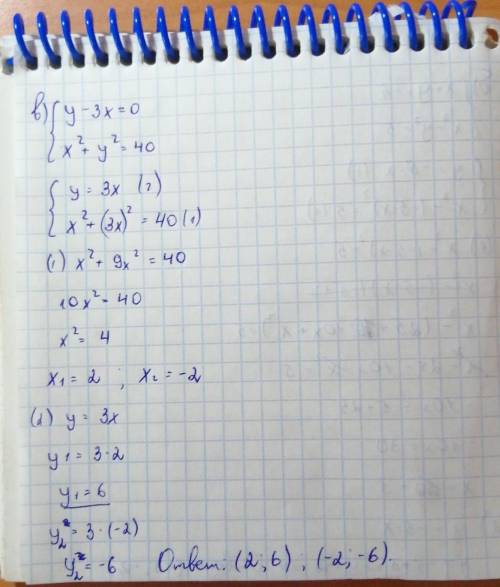 в) { y - 3x = 0
x² + y² = 40
{ y = 3x (2)
x² + (3x)² = 40 (1)
(1) x² + 9x² = 40
10x² = 40
x² = 4
x₁ = 2 ; x₂ = -2
(2) y = 3x
y₁ = 3·2
y₁ = 6
y₂ = 3·(-2)
y₂ = -6 Ответ: (2; 6) , (-2; -6).